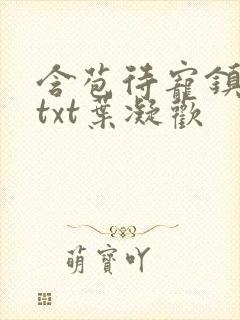 含苞待寵鎮
txt葉凝歡
萌寶吖